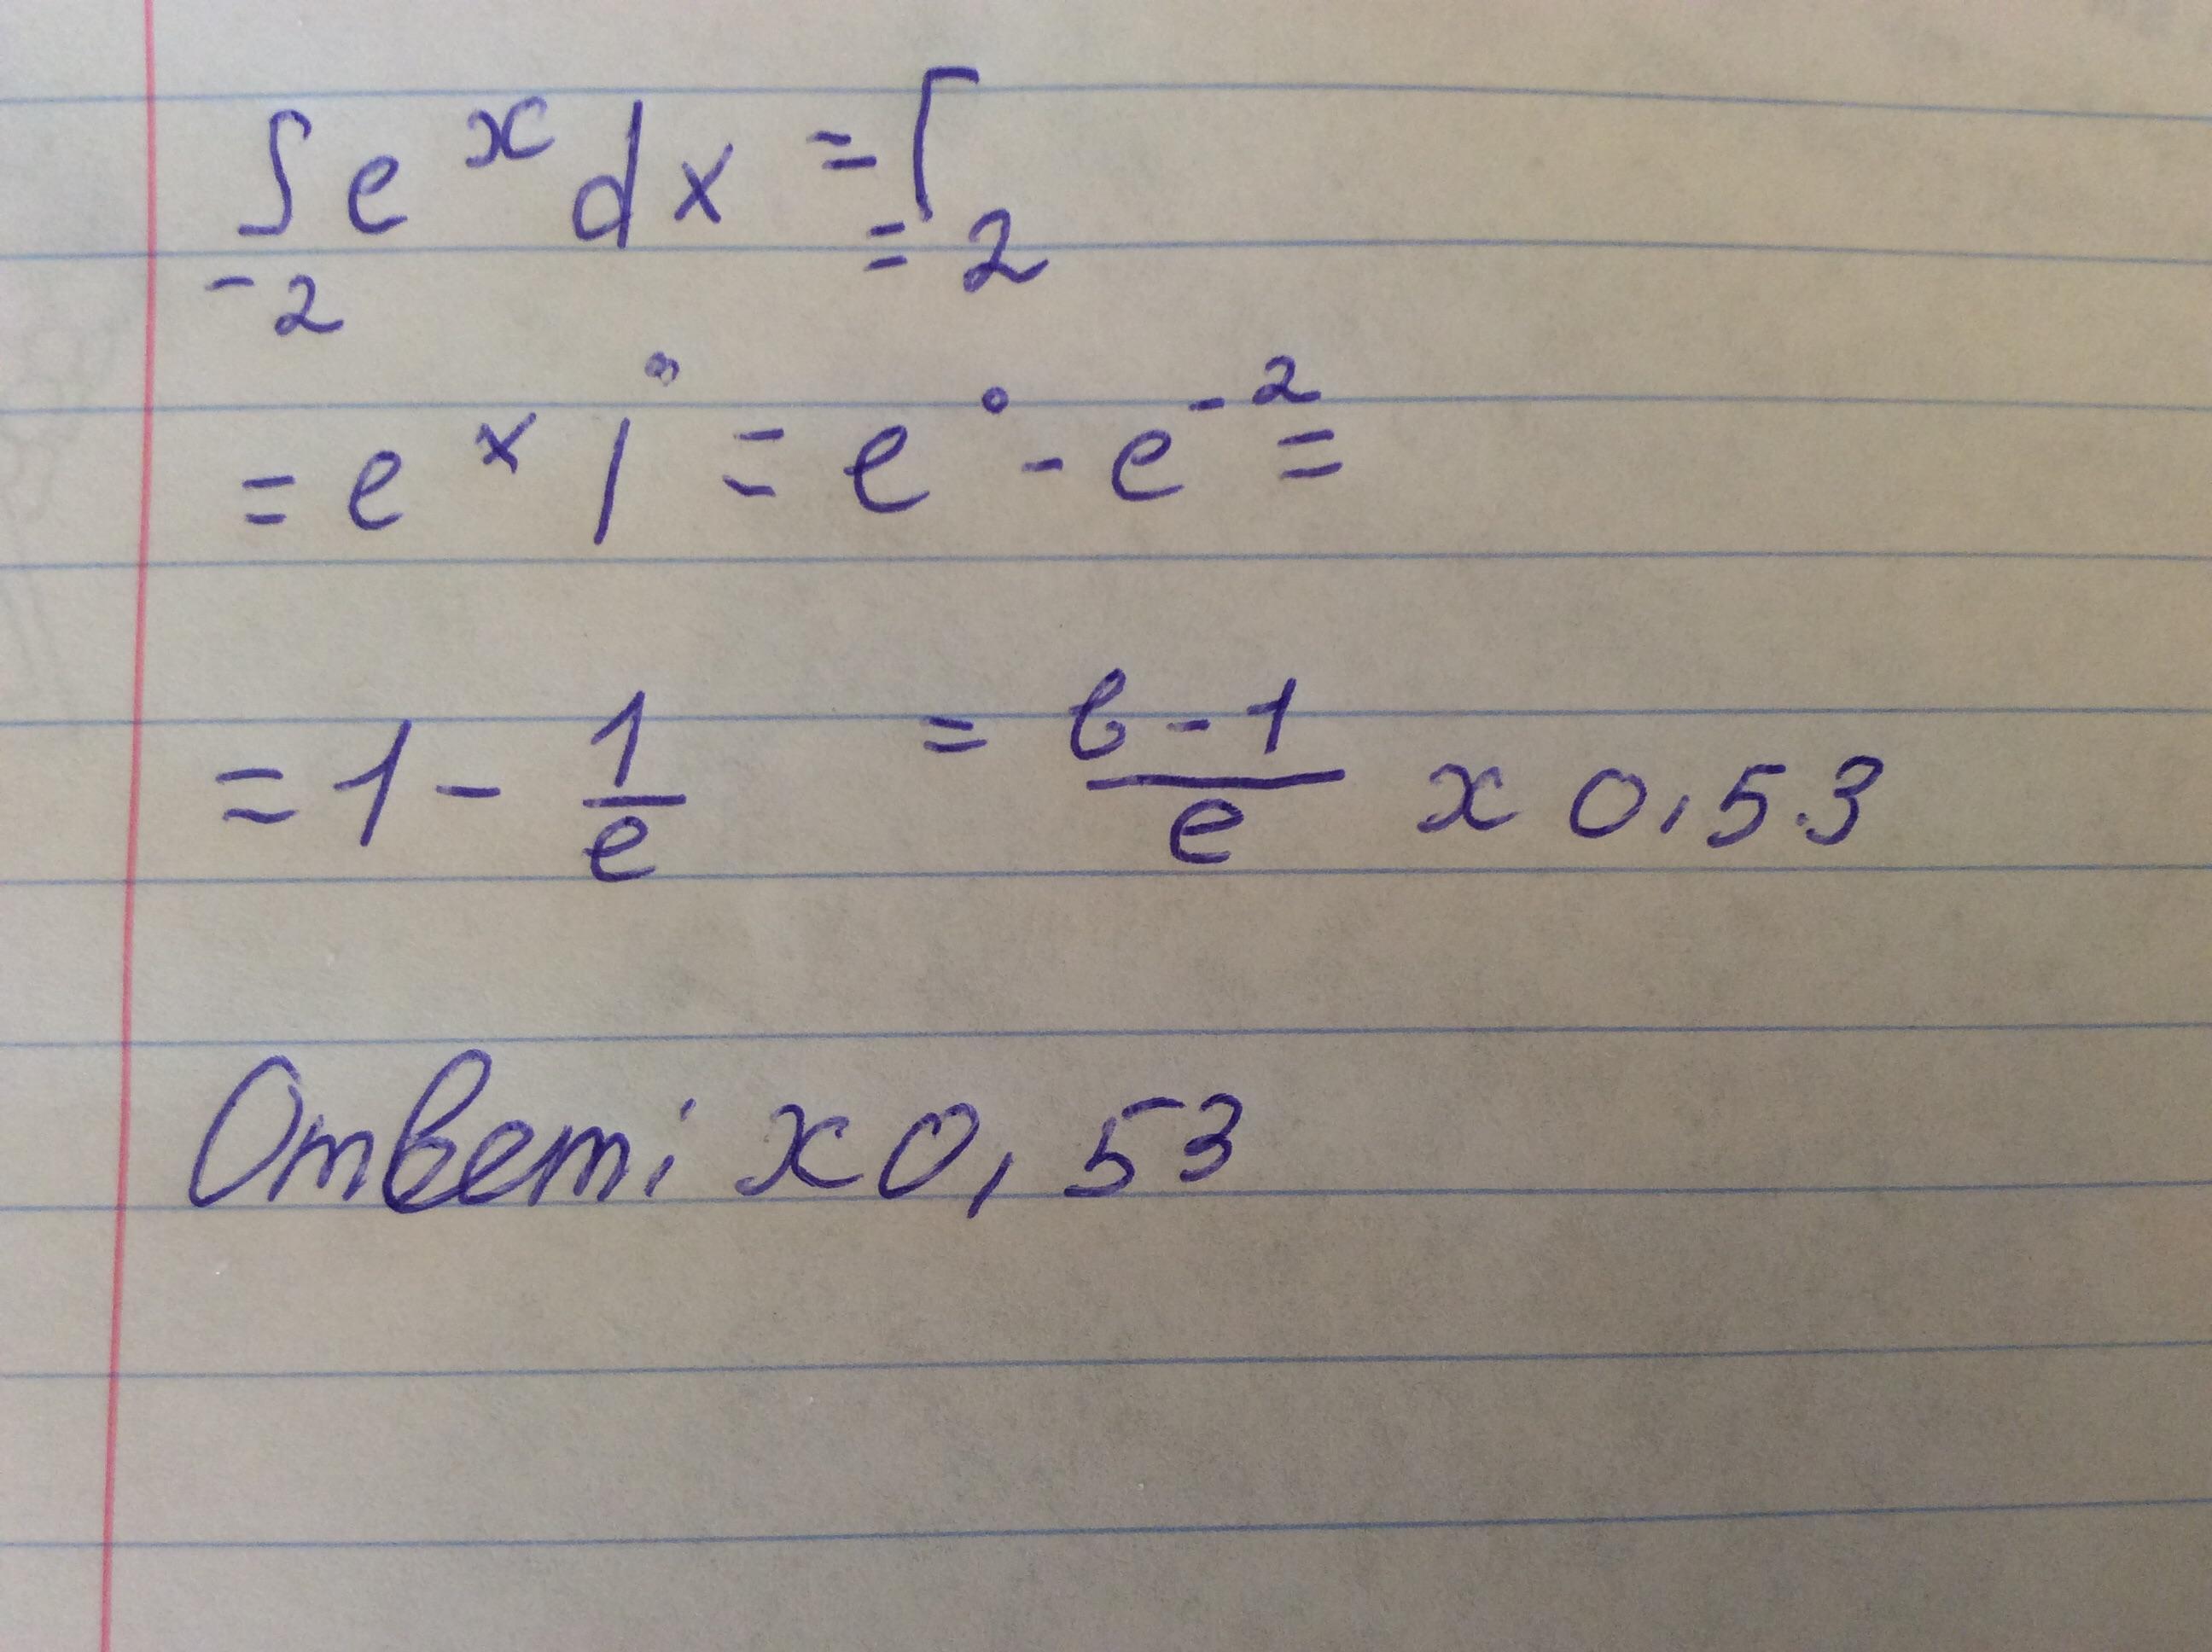 ∫ e^x dx = ⌈
-2 = 2
= e^x |^0 = e^0 - e^-2 =
= 1 - 1/e = e-1/e x 0,53
Ответ: x 0,53